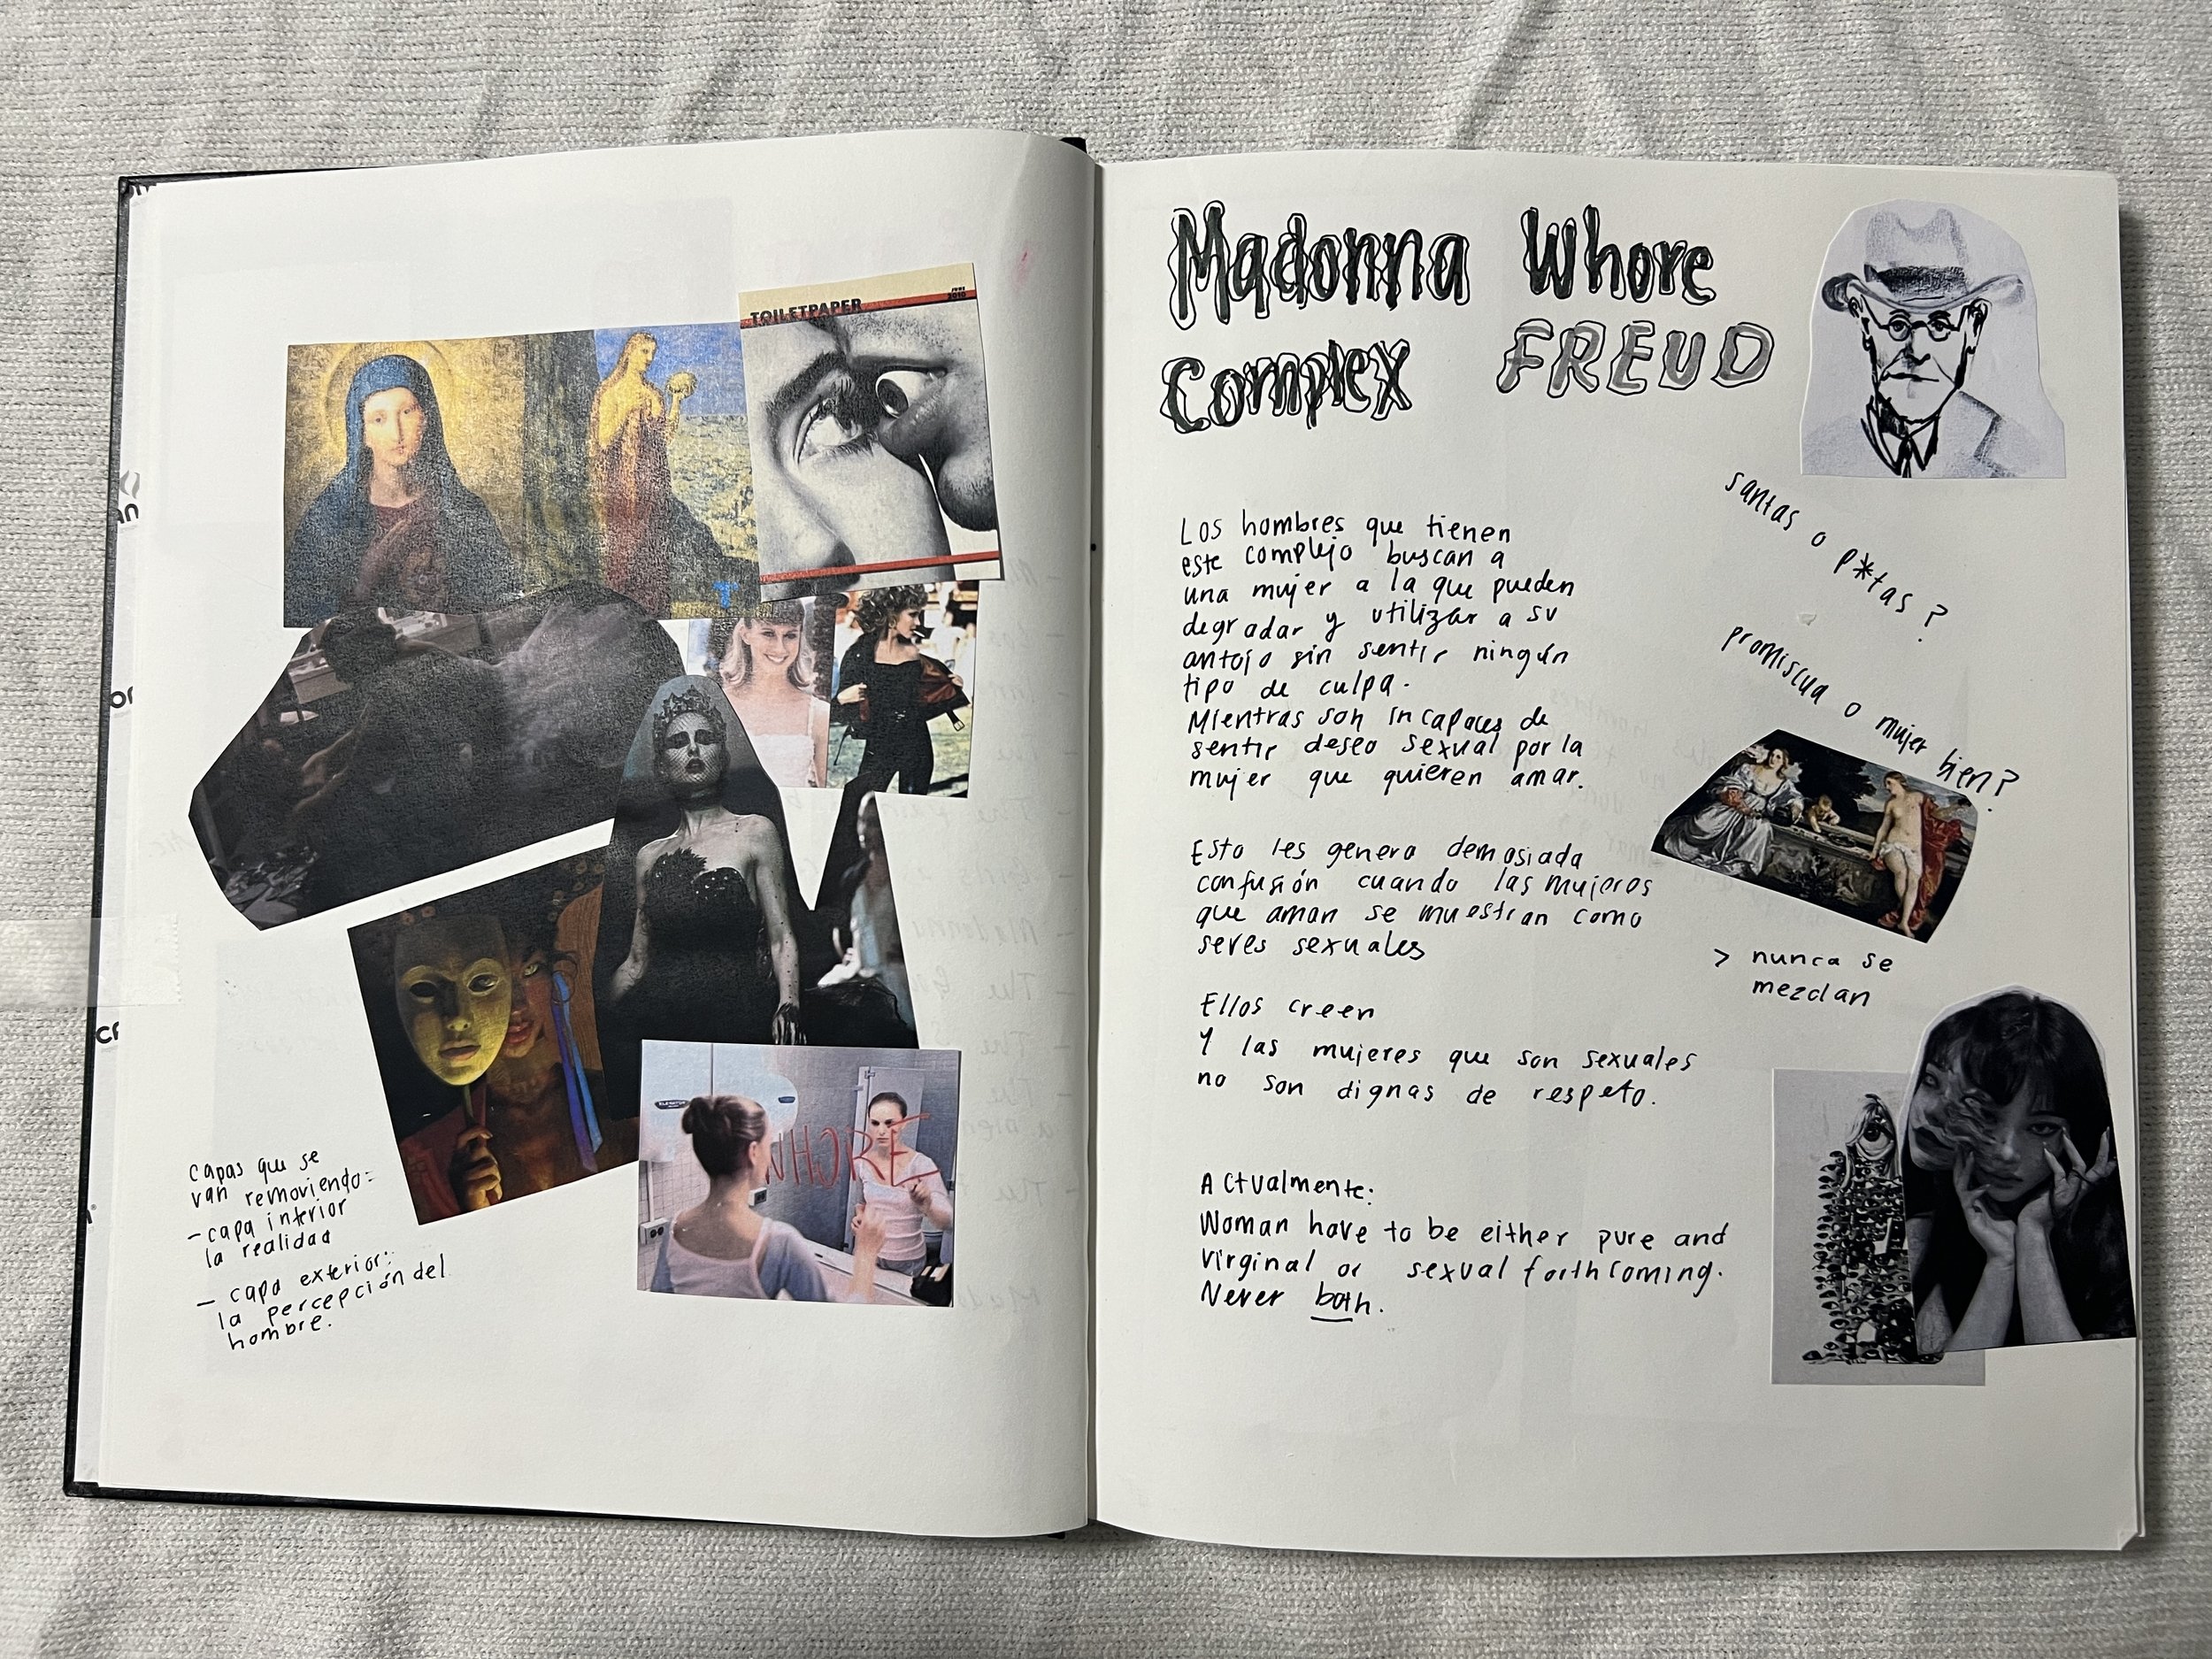 TOILETPAPER
JUNE
2010
T
WHORE
capas que se
van removiendo:
- capa interior
la realidad
- capa exterior:
la percepción del
hombre.
Madonna Whore
Complex FREUD
santas o p*tas?
promiscua o mujer bien?
Los hombres que tienen
este complejo buscan a
una mujer a la que pueden
degradar y utilizar a su
antojo sin sentir ningún
tipo de culpa.
Mientras son incapaces de
sentir deseo sexual por la
mujer que quieren amar.
Esto les genera demasiada
confusión cuando las mujeres
que aman se muestran como
seres sexuales
> nunca se
mezclan
Ellos creen
Y las mujeres que son sexuales
no son dignas de respeto.
Actualmente:
Woman have to be either pure and
virginal or sexual forthcoming.
Never both.